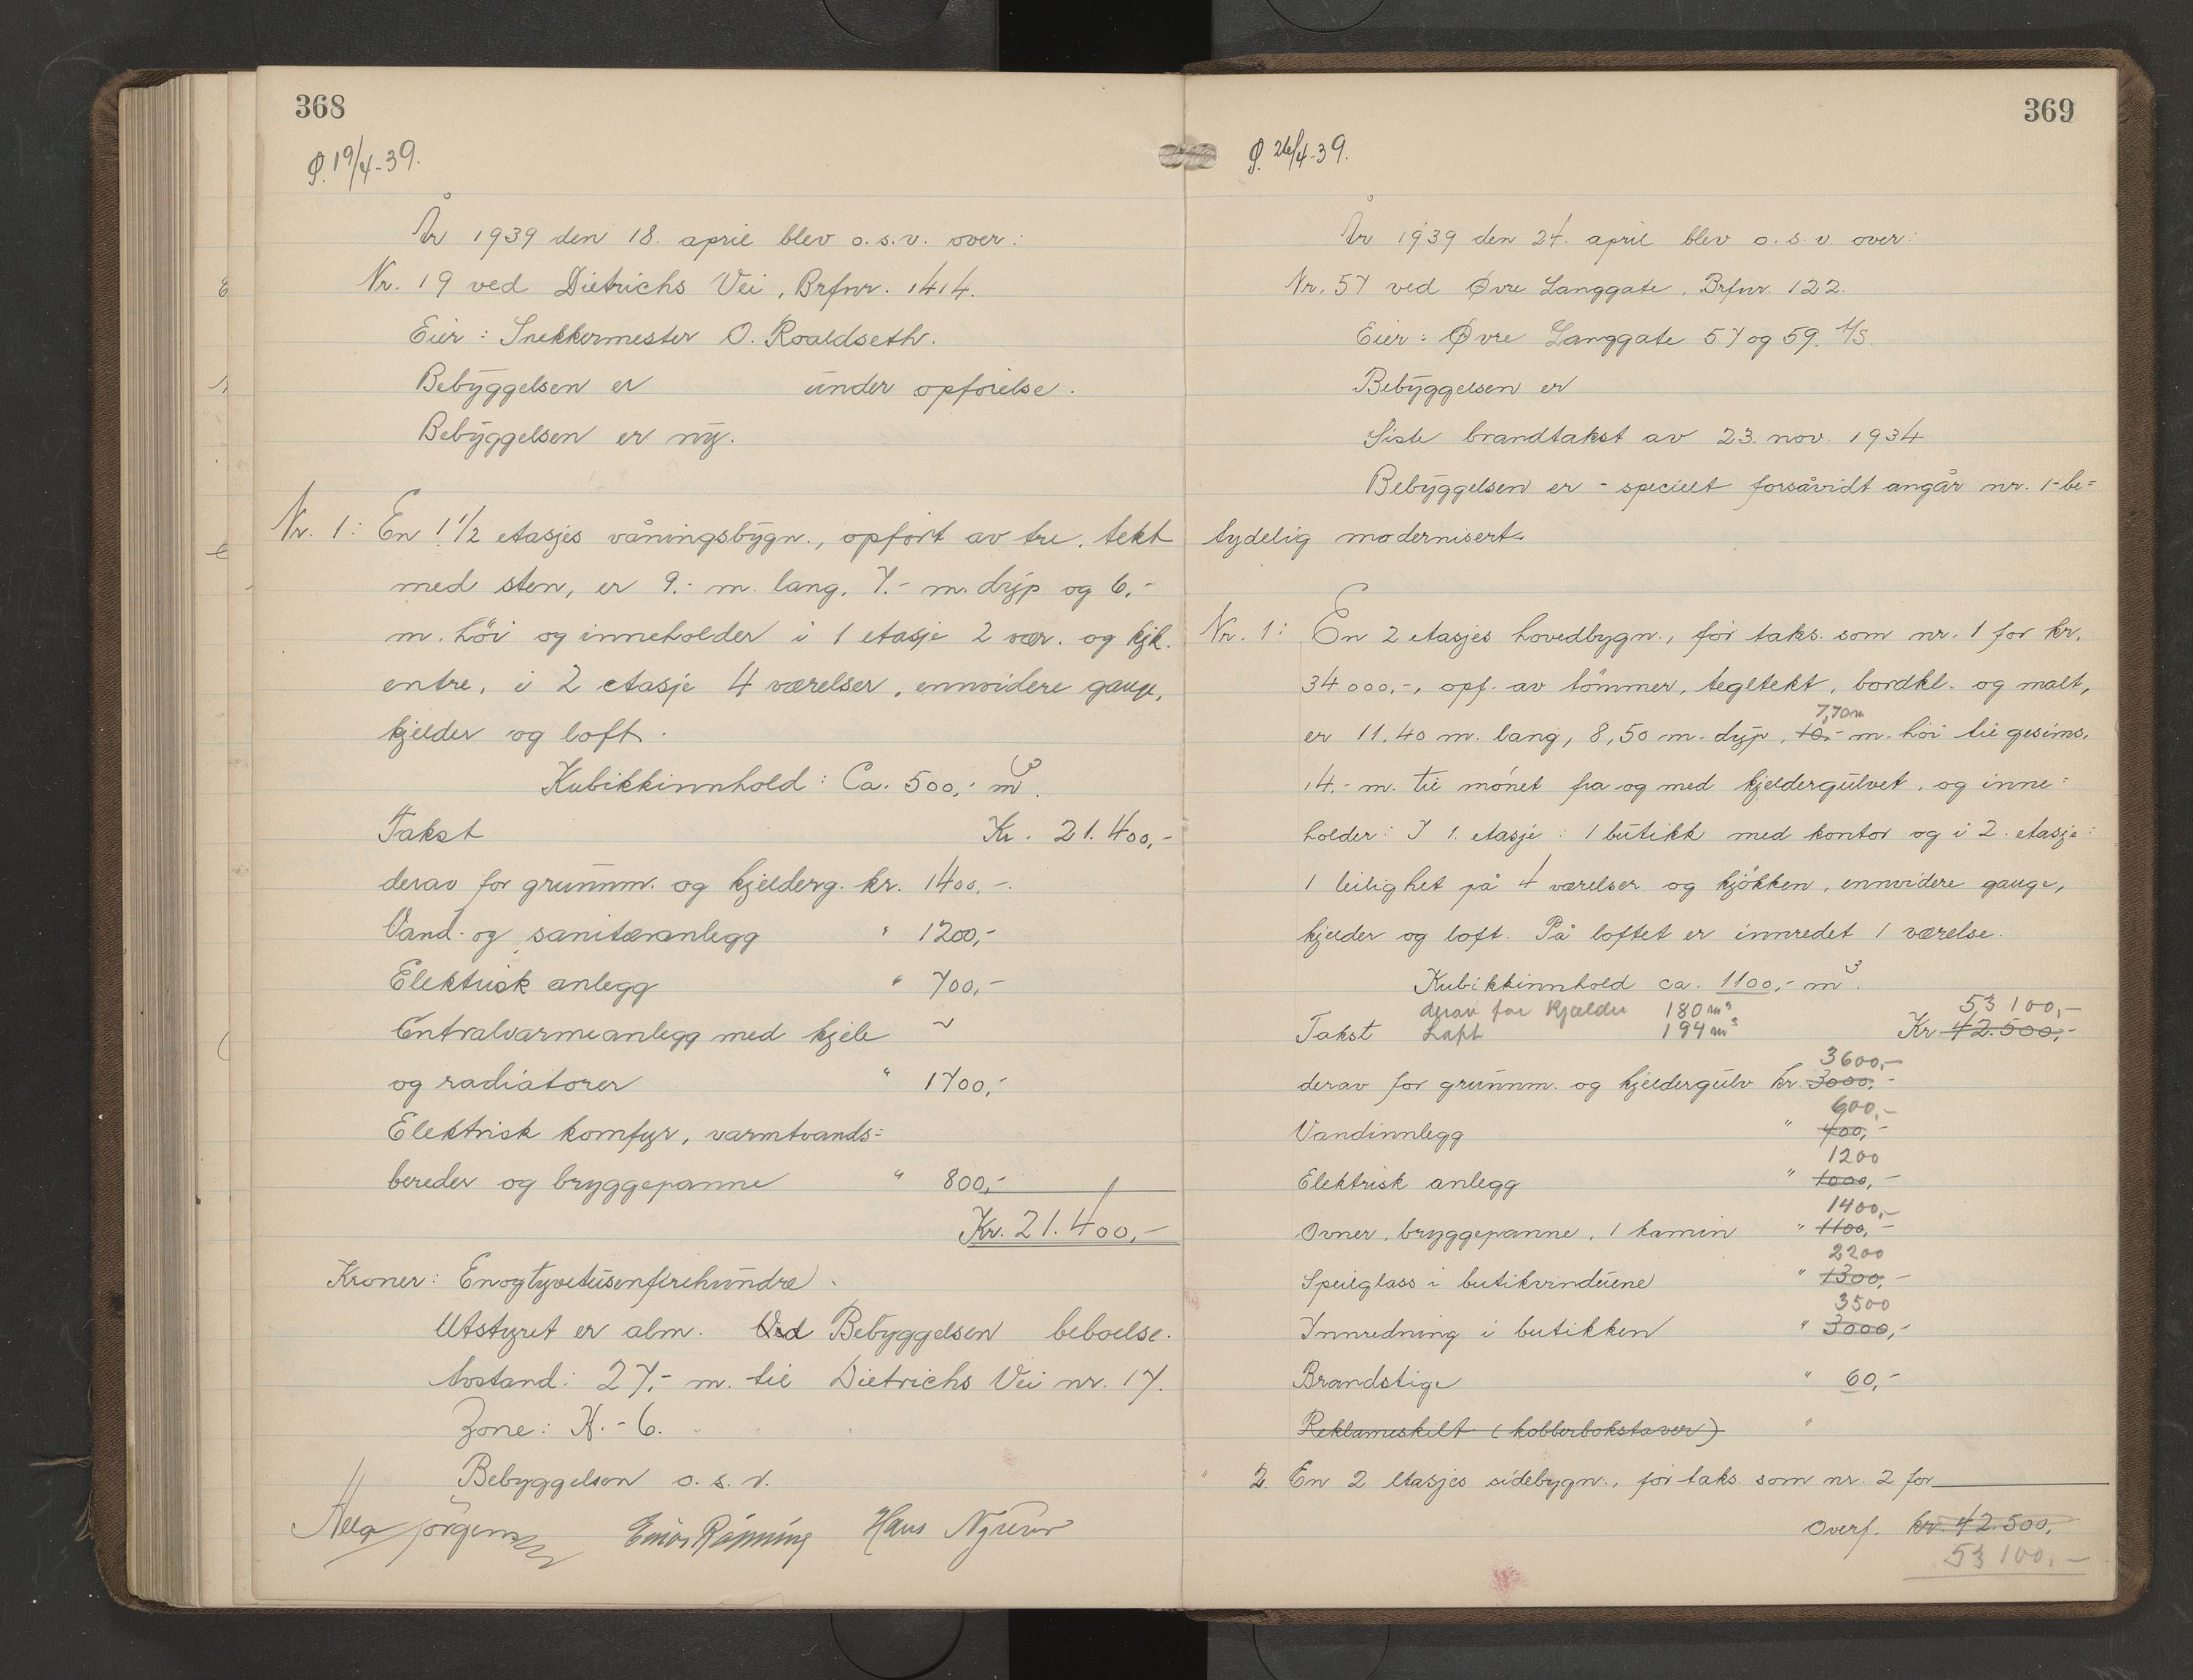 368
P. 19/4-39.
År 1939 den 18. april blev o.s.v. over:
Nr. 19 ved Dietrichs Vei, Brfnr. 1414.
Eier: Snekkermester O. Roaldseth.
Bebyggelsen er under opførelse.
Bebyggelsen er ny.
Nr. 1: En 1 1/2 etasjes våningsbygn., opført av tre, tekt
med sten, er 9.- m. lang, 7.- m. dyp og 6,-
m. höi og inneholder i 1 etasje 2 vær. og kjk.
entre, i 2 etasje 4 værelser, ennvidere gange,
kjelder og loft.
Kubikkinnhold: Ca. 500,- m³.
Takst Kr. 21.400,-
derav for grunnm. og kjelderg. kr. 1400,-.
Vand- og sanitæranlegg " 1200,-
Elektrisk anlegg " 700,-
Centralvarmeanlegg med kjele
og radiatorer " 1700,-
Elektrisk komfyr, varmtvands=
bereder og bryggepanne " 800,-
Kr. 21.400,-
Kroner: Enogtyvetusenfirehundre.
Utstyret er alm. Ved Bebyggelsen beboelse.
Avstand: 27,- m. til Dietrichs Vei nr. 17.
Zone: K. - 6.
Bebyggelsen o. s. v.
Jörgensen Einar Rønning Hans Nyrud
369
P. 26/4-39.
År 1939 den 24. april blev o. s. v. over:
Nr. 57 ved Øvre Langgate, Brfnr. 122.
Eier: Øvre Langgate 57 og 59. A/S
Bebyggelsen er
Siste brandtakst av 23. nov. 1934
Bebyggelsen er - specielt forsåvidt angår nr. 1 - be=
tydelig modernisert.
Nr. 1: En 2 etasjes hovedbygn., før taks. som nr. 1 for kr.
34000,-, opf. av tömmer, tegltekt, bordkl. og malt,
7,70m
er 11.40 m. lang, 8,50 m. dyp, 10,- m. höi til gesims,
14,- m. til mönet fra og med kjeldergulvet, og inne=
holder: I 1. etasje: 1 butikk med kontor og i 2. etasje:
1 leilighet på 4 værelser og kjökken, ennvidere gange,
kjelder og loft. På loftet er innredet 1 værelse.
Kubikkinnhold ca. 1100,- m³.
derav for Kjælder 180 m³ 53 100,-
Takst Loft 194 m³ Kr 42.500,-
3600,-
derav for grunnm. og kjeldergulv kr. 3000,-
600,-
Vandinnlegg " 400,-
1200
Elektrisk anlegg " 1000,-
1400,-
Ovner, bryggepanne, 1 kamin " 1100,-
2200
Speilglass i butikvinduene " 1300,-
3500
Innredning i butikken " 3000,-
Brandstige " 60,-
Reklameskilt (kobberbokstaver) "
" 2. En 2 etasjes sidebygn., før taks. som nr. 2 for
Overf. kr. 42.500,
53 100,-